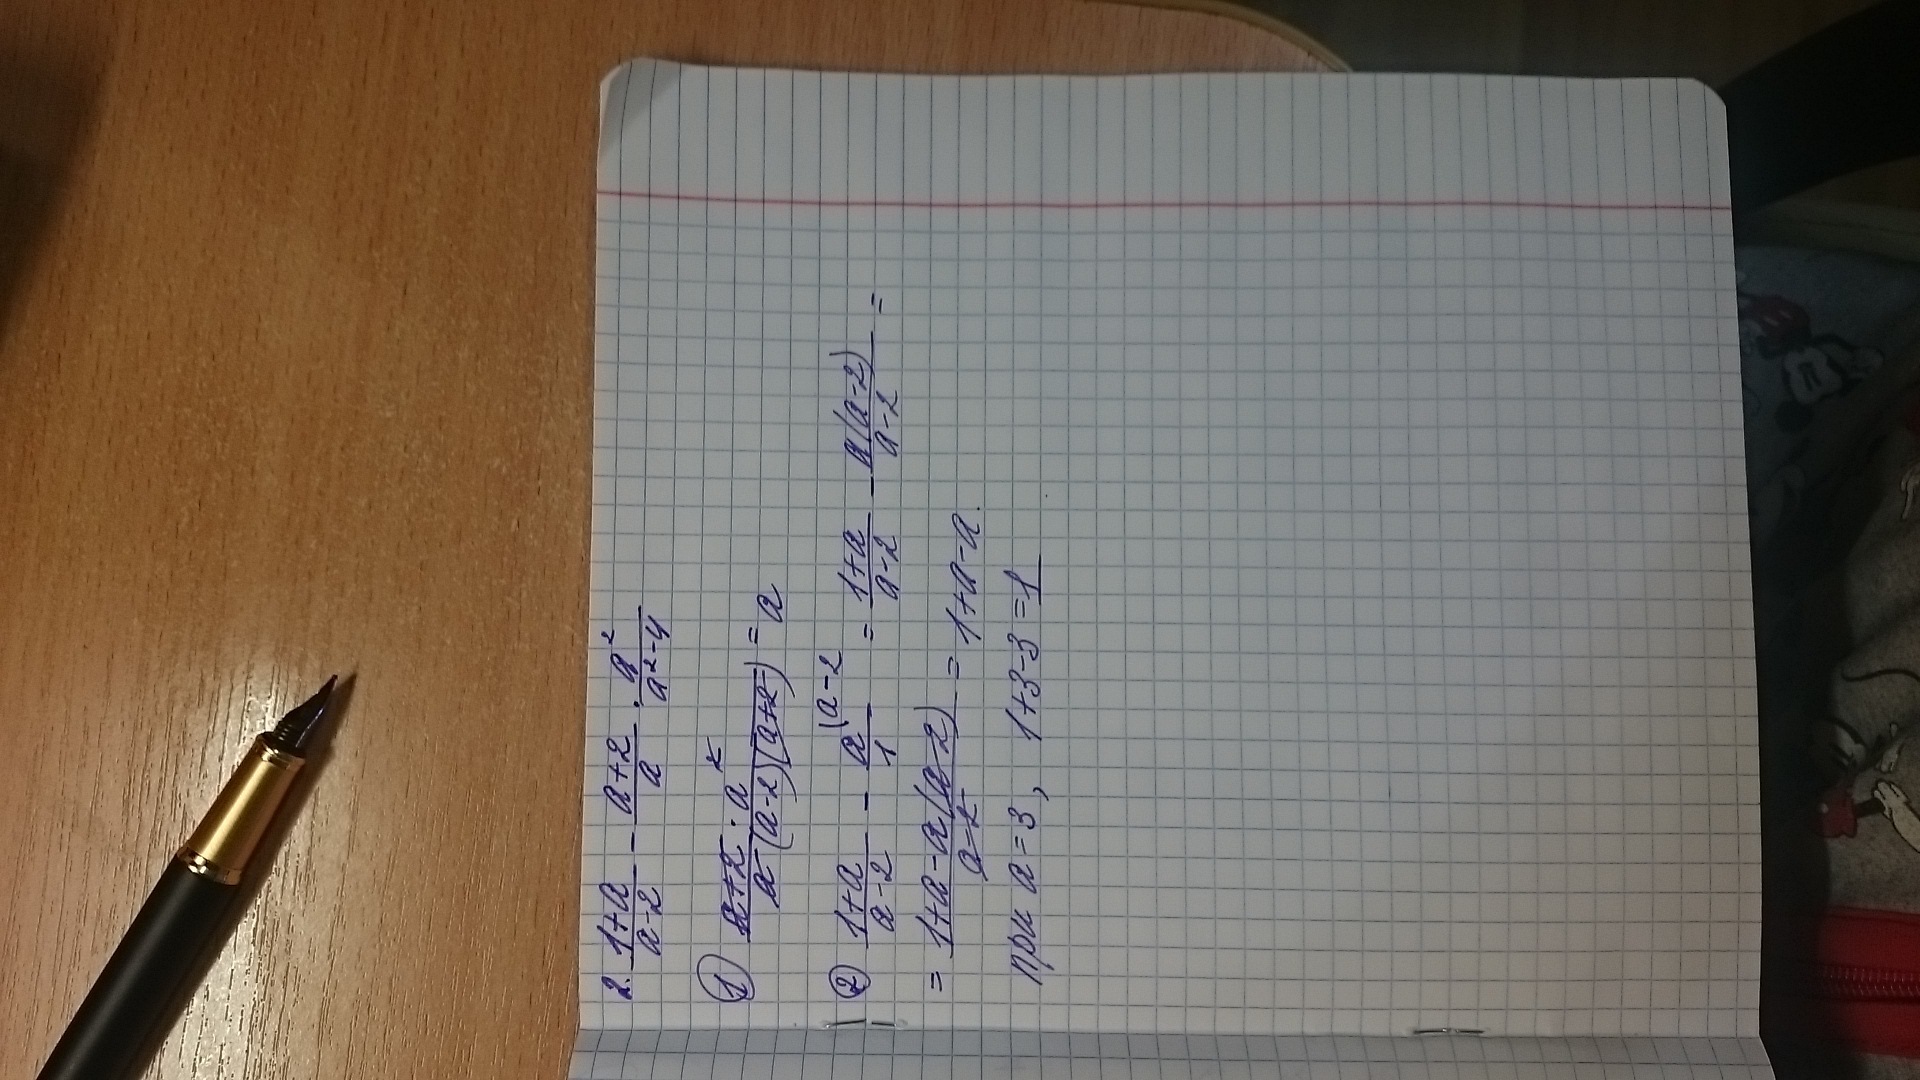 2. \frac{1+a}{a-2} - \frac{a+2}{a} \cdot \frac{a^2}{a^2-4}
① \frac{a+2 \cdot a^2}{a(a-2)(a+2)} = a
② \frac{1+a}{a-2} - \frac{a^{\backslash a-2}}{1} = \frac{1+a}{a-2} - \frac{a(a-2)}{a-2} =
= \frac{1+a-a(a-2)}{a-2} = 1+a-a.
при a=3, 1+3-3=1